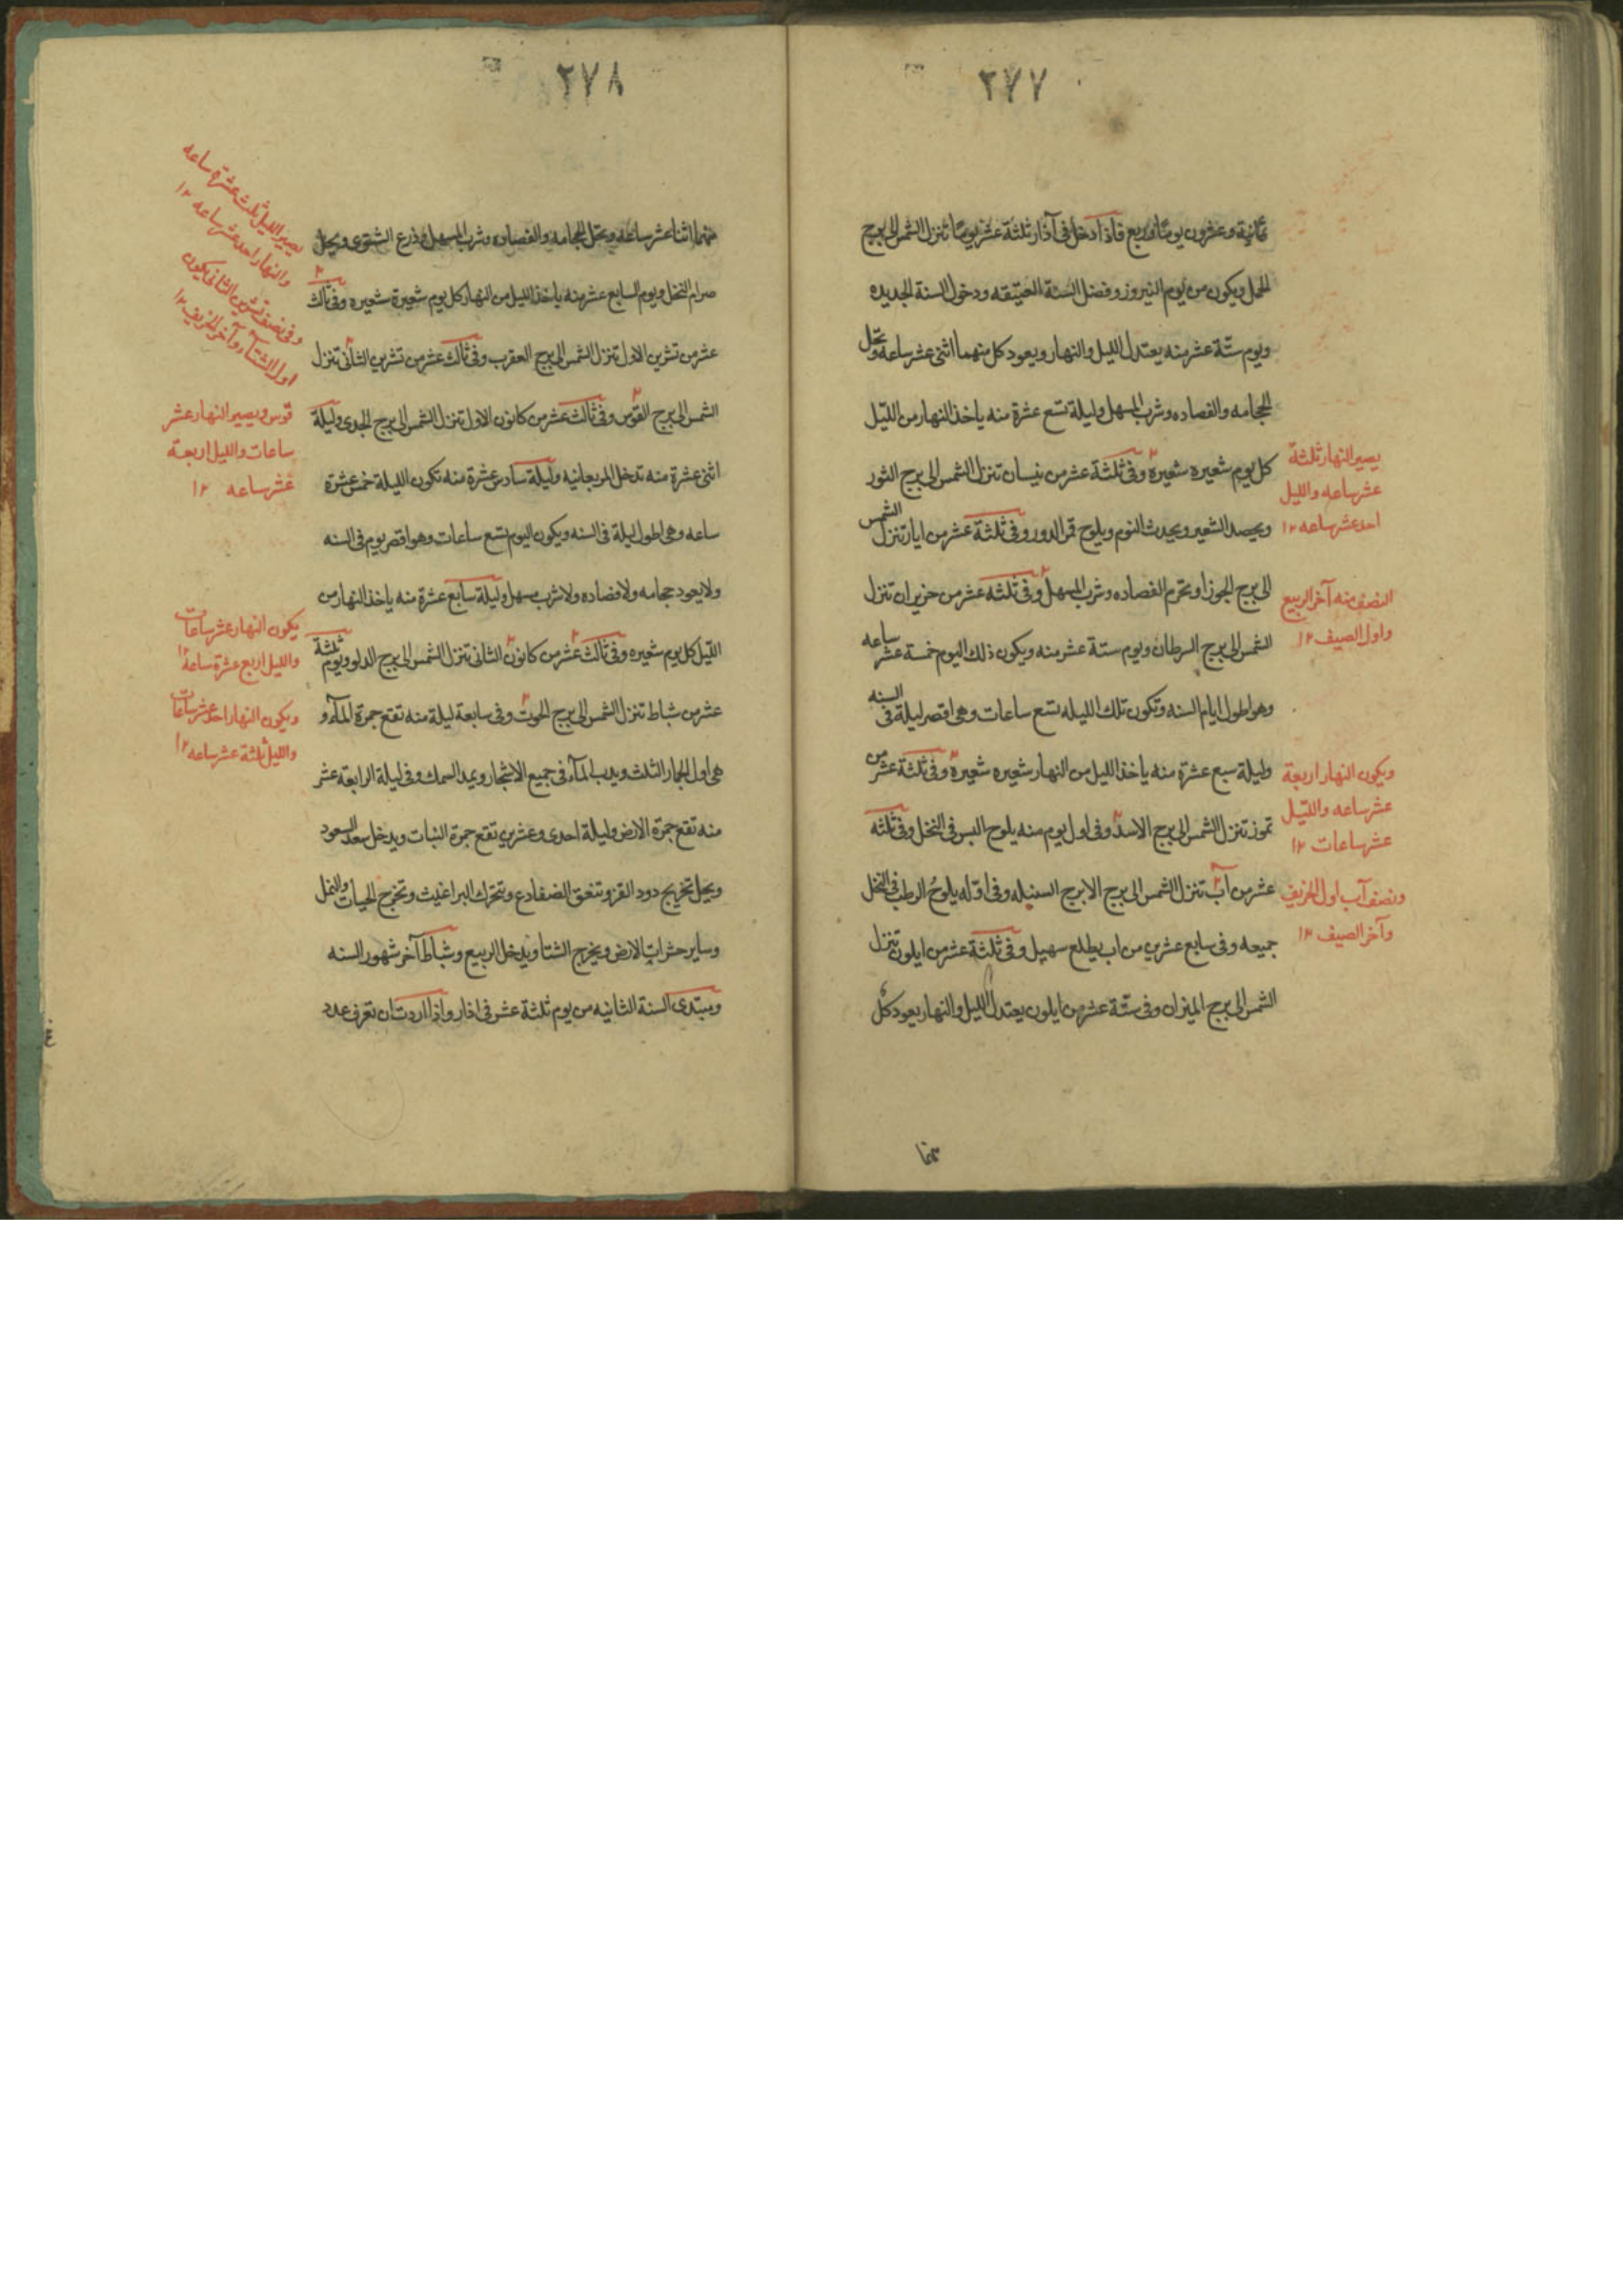 ٢٧٧
ثمانية وعشرون يومًا وربع فاذا دخل فى آذار ثلثة عشر يومًا تنزل الشمس الى برج
الحمل ويكون من يوم النيروز وفضل السنة العتيقه ودخول السنة الجديده
ويوم ستّة عشر منه يعتدل الليل والنهار ويعود كل منهما اثنى عشر ساعه وتحل
الحجامه والفصاده وشرب المسهل وليلة تسع عشرة منه ياخذ النهار من اللّيل
كل يوم شعيره شعيرة وفى ثلثة عشر من نيسان تنزل الشمس الى برج الثور
ويحصد الشعير ويحدث النوم ويلوح تمر الدور وفى ثلثة عشر من ايار تنزل الشمس
الى برج الجوزا وتحرم الفصاده وشرب المسهل وفى ثلثه عشر من حزيران تنزل
الشمس الى برج السرطان ويوم ستة عشر منه ويكون ذلك اليوم خمسة عشر ساعه
وهو اطول ايام السنه وتكون تلك الليله تسع ساعات وهى اقصر ليلة فى السنه
وليلة سبع عشرة منه ياخذ الليل من النهار شعيره شعيرة وفى ثلثة عشر من
تموز تنزل الشمس الى برج الاسد وفى اول يوم منه يلوح البسر فى النخل وفى ثلثه
عشر من آب تنزل الشمس الى برج الابرج السنبله وفى اوّله يلوحُ الرطب فى النخل
جميعه وفى سابع عشرين من اب يطلع سهيل وفى ثلثة عشر من ايلون تنزل
الشمس الى برج الميزان وفى ستّة عشر من ايلون يعتدل الليل والنهار يعود كل
يصير النهار ثلثة
عشر ساعه والليل
احد عشر ساعه ١٢
النصف منه آخر الربيع
واول الصيف ١٢
ويكون النهار اربعة
عشر ساعه واللّيل
عشر ساعات ١٢
ونصف آب اول الخريف
وآخر الصيف ١٢
٢٧٨
منهما اثنا عشر ساعه وتحل الحجامه والفصاده وشرب المسهل وذرع الشتوى ويحل
صرام النخل ويوم السابع عشر منه ياخذ الليل من النهار كل يوم شعيرة شعيره وفى ثالث
عشر من تشرين الاول تنزل الشمس الى برج العقرب وفى ثالث عشر من تشرين الثانى تنزل
الشمس الى برج القوس وفى ثالث عشر من كانون الاول تنزل الشمس الى برج الجدى وليلة
اثنى عشرة منه تدخل المربعانيه وليلة سادس عشرة منه تكون الليلة خمس عشرة
ساعه وهى اطول ليلة فى السنه ويكون اليوم تسع ساعات وهو اقصر يوم فى السنه
ولا يعود حجامه ولا فصاده ولا شرب مسهل وليلة سابع عشرة منه ياخذ النهار من
اللّيل كل يوم شعيره وفى ثالث عشر من كانون الثانى تنزل الشمس الى برج الدلو ويوم ثلثة
عشر من شباط تنزل الشمس الى برج الحوت وفى سابعة ليلة منه تقع جمرة المآء و
هى اول الجمار الثلث ويدب المآء فى جميع الاشجار ويمد السمك وفى ليلة الرابعة عشر
منه تقع جمرة الارض وليلة احدى وعشرين تقع جمرة النبات ويدخل سعد السعود
ويحل تخريج دود القز وتنغق الضفادع وتتحرك البراغيث وتخرج الحيات والنمل
وساير حشرات الارض ويخرج الشتا ويدخل الربيع وشباط آخر شهور السنه
ويبتدى السنة الثانيه من يوم ثلثة عشر فى اذار واذا اردت ان تعرف عدد
يصير الليل ثلث عشرة ساعه
والنهار احد عشر ساعه ١٢
وفى نصف تشرين الثانى يكون
اول الشتآء وآخر الخريف ١٢
قوس ويصير النهار عشر
ساعات والليل اربعة
عشر ساعه ١٢
يكون النهار عشر ساعات
والليل اربع عشرة ساعة ١٢
ويكون النهار احد عشر ساعات
والليل ثلثة عشر ساعه ١٢